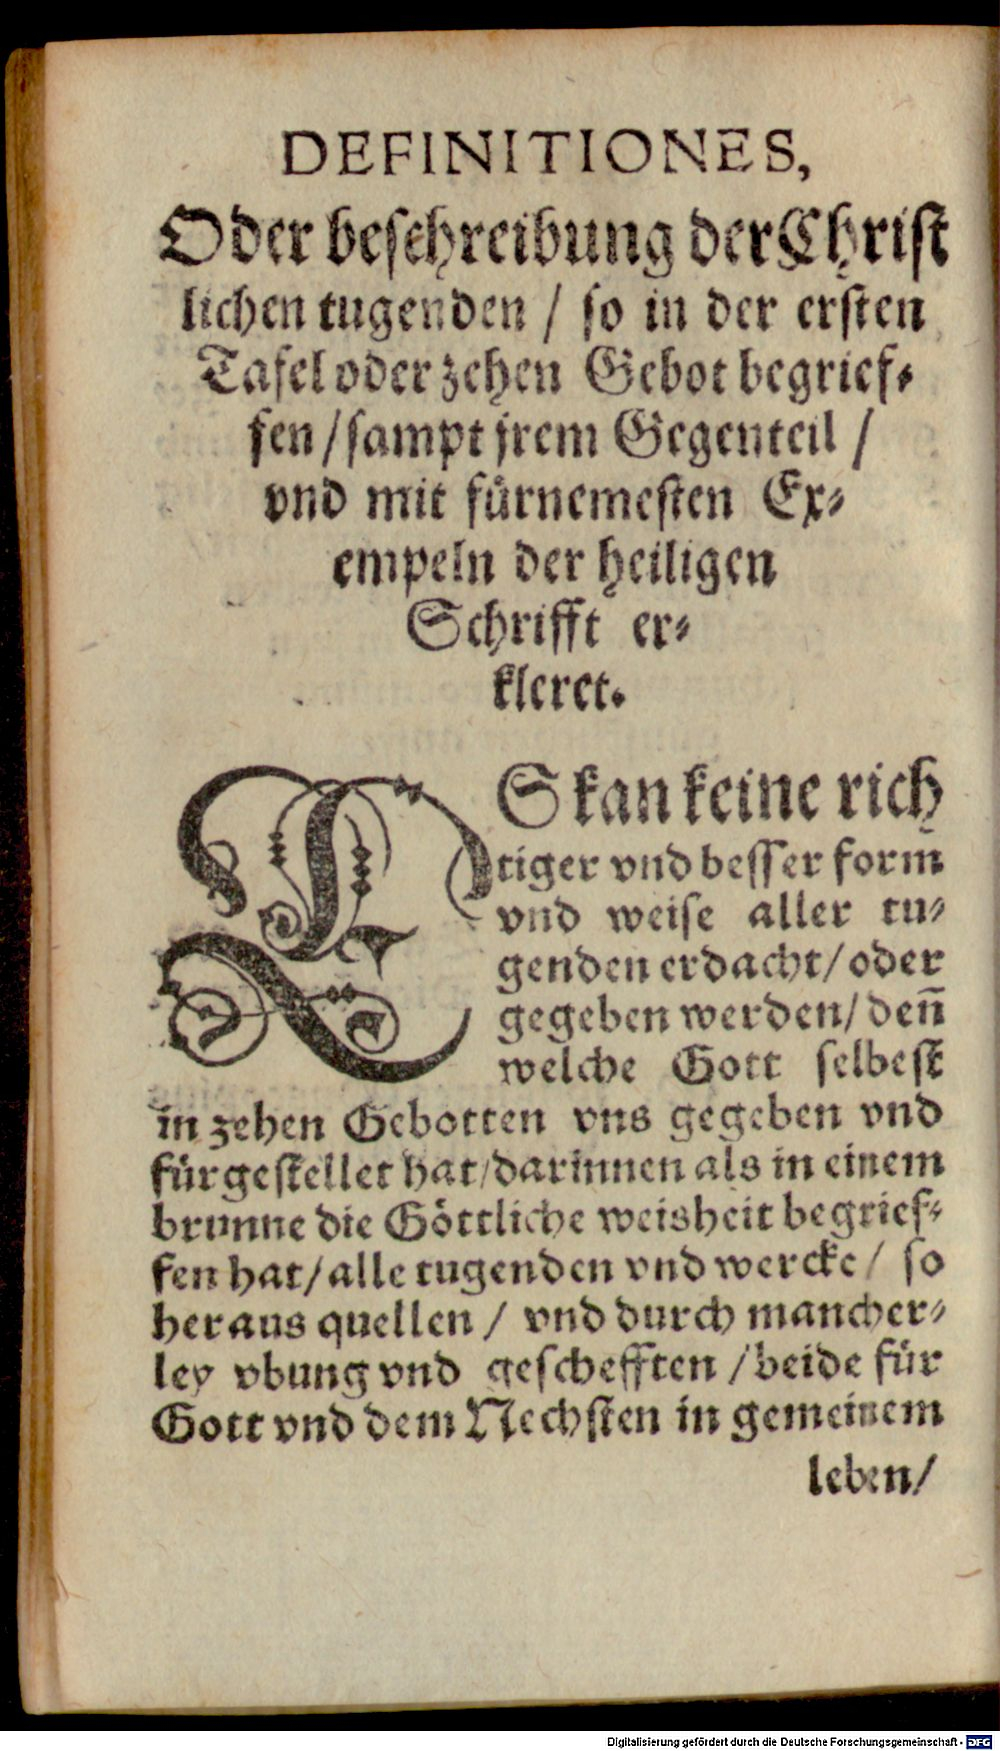 DEFINITIONES,
Oder beſchreibung der Chriſt
lichen tugenden / ſo in der erſten
Tafel oder zehen Gebot begrief⸗
fen / ſampt jrem Gegenteil /
vnd mit fürnemeſten Ex⸗
empeln der heiligen
Schrifft er⸗
kleret.
ES kan keine rich
tiger vnd beſſer form
vnd weiſe aller tu⸗
genden erdacht / oder
gegeben werden / den̄
welche Gott ſelbeſt
in zehen Gebotten vns gegeben vnd
fürgeſtellet hat / darinnen als in einem
brunne die Göttliche weisheit begrief⸗
fen hat / alle tugenden vnd wercke / ſo
heraus quellen / vnd durch mancher⸗
ley vbung vnd geſchefften / beide für
Gott vnd dem Nechſten in gemeinem
leben /
Digitalisierung gefördert durch die Deutsche Forschungsgemeinschaft - DFG